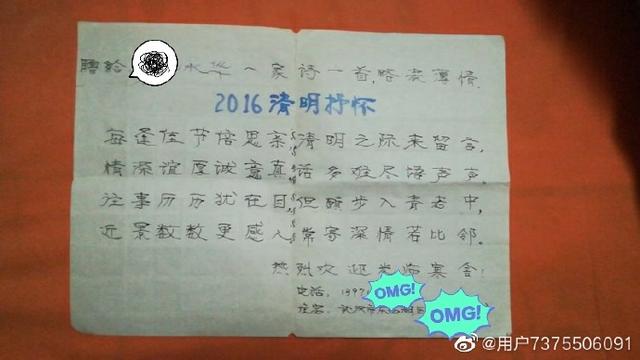 赠给 水华一家诗一首,略表薄情.
2016清明抒怀
每逢佳节倍思亲,清明之际来留言,
情深谊厚诚意真,话多难尽嗓声声.
往事历历犹在目,但愿步入青老中,
近景数数更感人,常寄深情若比邻。
热烈欢迎光临寒舍!
电话: 1397
OMG!
住宅:武汉市东西湖
OMG!
@用户7375506091